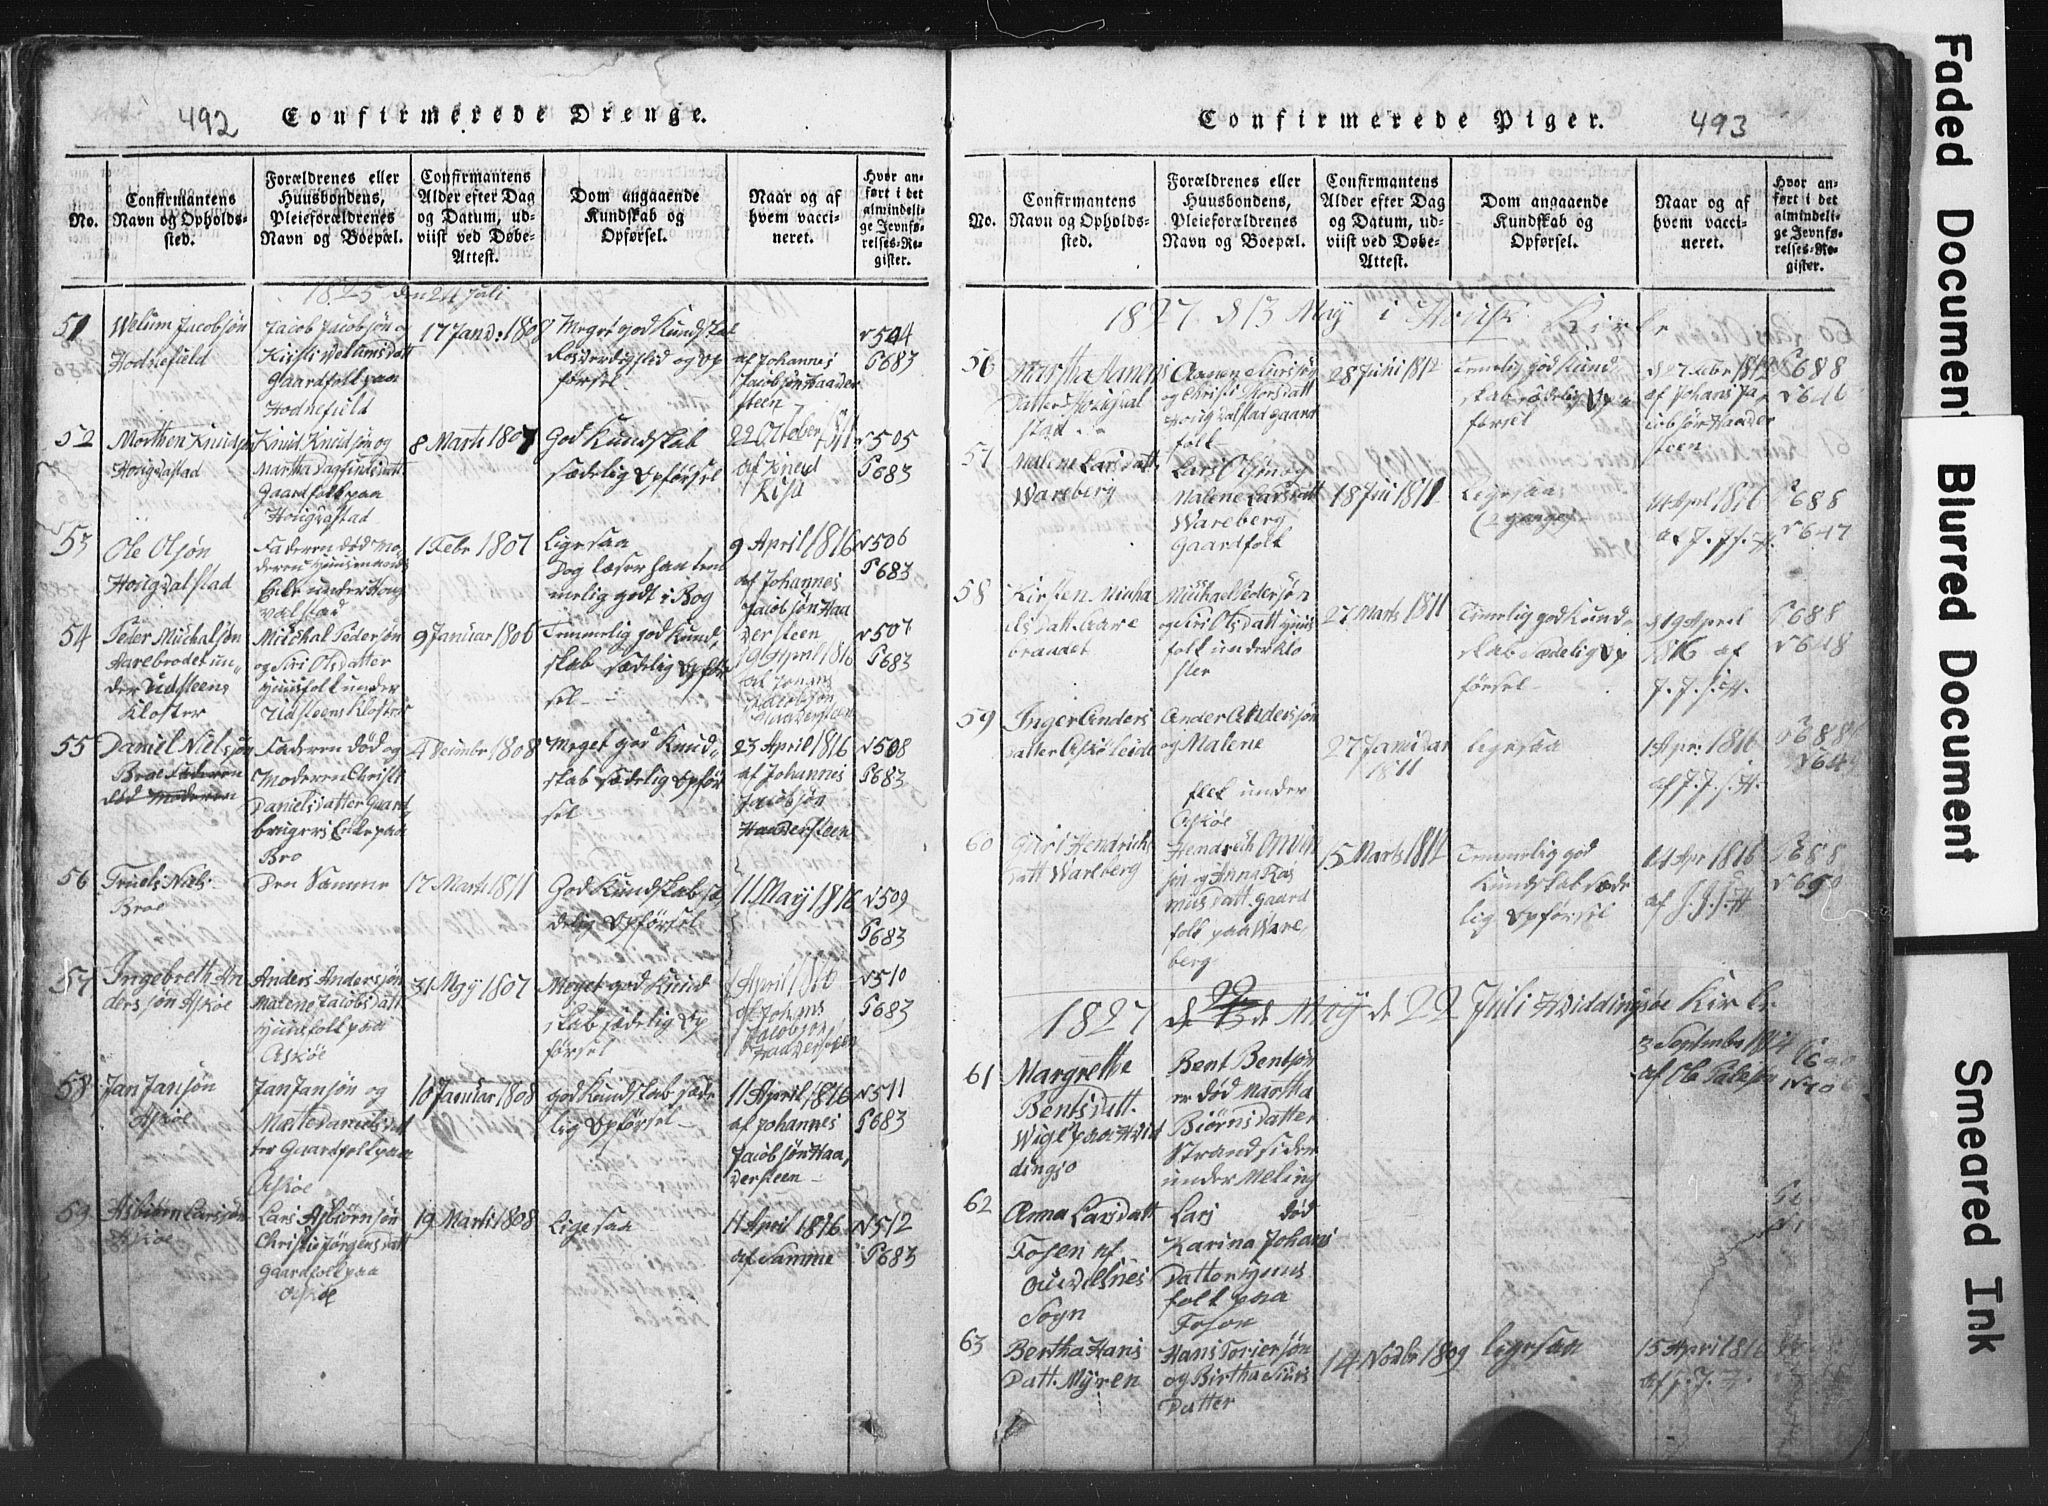 492
Confirmerede Drenge.
No.
Confirmantens
Navn og Opholds-
sted.
Forældrenes eller
Huusbondens,
Pleieforældrenes
Navn og Boepæl.
Confirmantens
Alder efter Dag
og Datum, ud-
viist ved Døbe-
Attest.
Dom angaaende
Kundskab og
Opførsel.
Naar og af
hvem vacci-
neret.
Hvor an-
ført i det
almindeli-
ge Jevnfø-
relses-Re-
gister.
1825 den 24 Juli
51
Welum Jacobsøn
Hodnefield
Jacob Jacobsøn o
Kirsti Welumsdatt
Gaardfolk paa
Hodnefield
17 Jand: 1808
Meget god Kundskab
og op
førsel
af Johannes
Jacobsøn Haader
steen
N 504
P 683
52
Morthen Knudsøn
Hougvastad
Knud Knudsøn og
Martha Dagfindsdatt
Gaardfolk paa
Hougvastad
8 Marti 1807
God Kundskab
sædelig Opførsel
22 October 1811
af Knud
N 505
P 683
53
Ole Olsøn
Hougvalstad
Faderen død Mo-
deren Huusmands
Enke under Houg
valstad
1 Febr 1807
Ligesaa
Dog læser han tem
melig godt i Bog
9 April 1816
af Johannes
Jacobsøn Haa
dersteen
N 506
P 683
54
Peder Michalsøn
Aarebrodet un-
der Udsteens
Kloster
Michal Pedersøn
og Siri Olsdatter
Huusfolk under
Udsteens Kloster
9 Januar 1806
Temmerlig god Kund,
skab sædelig Opfør
sel
19 April 1816
af Johans
Jacobsøn
Haadersteen
N 507
P 683
55
Daniel Nielsøn
Broe Faderen
død Moderen
Faderen Død og
Moderen Christi
Danielsdatter Gaard
brugers Enke paa
Bro
4 Decembr 1808
Meget god Kund
skab sædelig Opfør
sel
23 April 1816
af Johannes
Jacobsøn
Haadersteen
N 508
P 683
56
Truels Niels
Broe
Den Samme
17 Marti 1811
God Kundskab sæ
delig Opførsel
11 May 1816
N 509
P 683
57
Ingebreth An
dersøn Askøe
Anders Andersøn
Malene Jacobsdatt
Huusfolk paa
Askøe
31 May 1807
Meget god Kund
skab sædelig Op
førsel
April 1816
af Johans
Jacobsøn
Haadersteen
N 510
P 683
58
Jan Jansøn
Askøe
Jan Jansøn og
Mætte Danielsdat
ter Gaardfolk paa
Askøe
10 Januar 1808
god Kundskab sæde
lig Opførsel
11 April 1816
af Johannes
Jacobsøn Haa,
dersteen
N 511
P 683
59
Asbiørn Larssøn
Askøe
Lars Asbiørnsøn
Christi Jørgensdatt
Gaardfolk paa
Askøe
19 Marti 1808
Ligesaa
11 April 1816
af Samme
N 512
P 683
Confirmerede Piger.
493
No.
Confirmantens
Navn og Opholds-
sted.
Forældrenes eller
Huusbondens,
Pleieforældrenes
Navn og Boepæl.
Confirmantens
Alder efter Dag
og Datum, ud-
viist ved Døbe-
Attest.
Dom angaaende
Kundskab og
Opførsel.
Naar og af
hvem vacci-
neret.
Hvor an-
ført i det
almindeli-
ge Jevnfø-
relses-Re-
gister.
1827 d 13 May i Kirke
56
Martha Aanens
Datter Hougval
stad
Aanen Siursøn
og Christi Torsdatt
Hougvalstad Gaard
folk
28 Juni 1812
Temelig god Kund
skab sædelig Op
førsel
d 27 Febr 1812
af Johans Ja
cobsøn Haader
steen
P 688
N 646
57
Malene Larsdatt
Wareberg
Lars Olsøn og
Malene Larsdatt
Wareberg
Gaardfolk
18 Juni 1811
Ligesaa
(2 gange)
14 April 1816
af J. J. s. H.
P 688
N 647
58
Kirsten Micha
elsdatt. Aare
braaet
Michael Pedersøn
og Siri Olsdatt Huus
folk under Klo
ster
27 Marts 1811
Temelig god Kund
skab Sædelig Op
førsel
d 19 April
1816 af
J. J. s. H.
P 688
N 648
59
Inger Anders
datter Askøe
Ander Andersøn
og Malene
folk under
Askøe
27 Januar
1811
Ligesaa
1 Apr: 1816
af J. J. s. H.
P 688
N 649
60
Guri Hendrichs
datt Wareberg
Hendrich
søn og Anna Ras
musdatt. Gaard
folk paa Ware,
berg
15 Marts 1812
Temmelig god
Kundskab sæde
lig Opførsel
14 Apr 1816
af J. J. s. H
P 688
N 650
1827 d 22 de May de 22 Juli Hviddingsøe Kirke.
61
Margrethe
Bentsdatt.
Wige paa Hvid
dingsø
Bent Bentsøn
er død Martha
Biørnsdatter
Strandsidder
under Meling
3 September 1814
af Ole
62
Anna Larsdatt
Fosen af
Sogn
Lars død
Karina Johans
Datter Huus
folk paa
Foson
63
Bertha Hans
Datt. Myren
Hans Toriersøn
og Birtha Siurs
Datter
14 Novbr 1809
Ligesaa
15 April 1816
af J. J.
Faded Document
Blurred Document
Smeared Ink